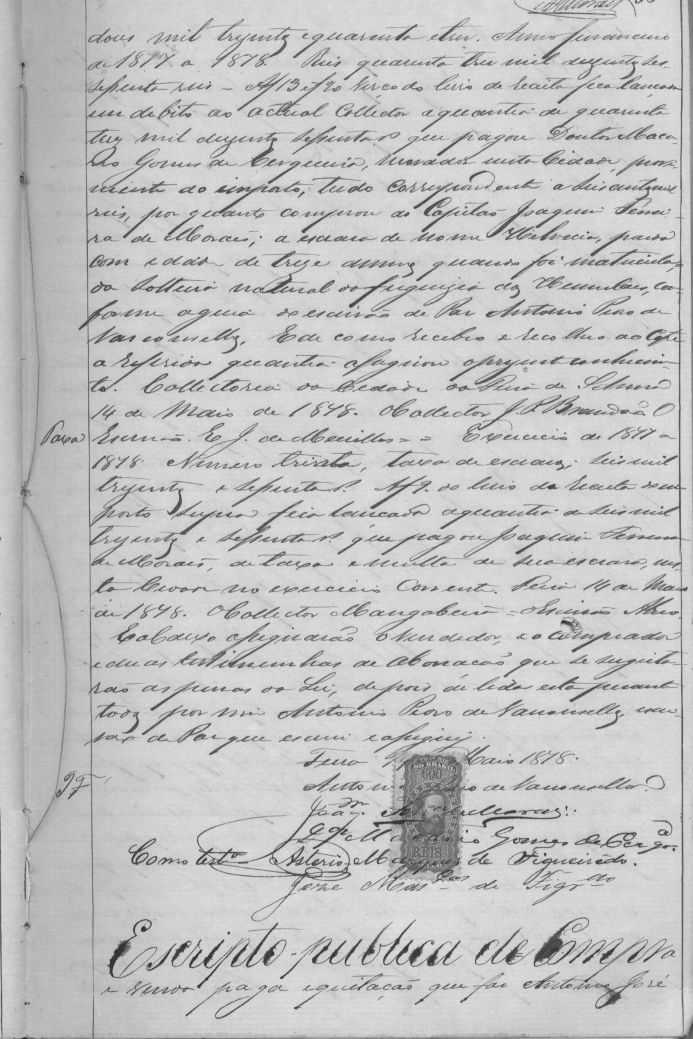 dous mil trezentos quarenta e tres. Anno financeiro
de 1877 a 1878. Reis quarenta tres mil duzentos se-
ssenta reis - Af 13 e f 20 verso do livro de receita fica lançada
em debito ao actual Collector a quantia de quarenta
tres mil duzentos sessenta rs que pagou Doutor Maca-
rio Gomes de Cerqueira, morador nesta Cidade, prove-
niente do imposto, tudo correspondente a
reis, por quanto comprou ao Capitão Joaquim Ferrei-
ra de Moraes; a escrava de nome parda
com edade de treze annos quando foi matricula-
da solteira natural da freguezia dos Humildes, co-
forme a guia do escrivão de Paz Antonio Pedro de
Vasconsellos. E de como recebeu e recolheu ao Cofre
a referida quantia assignou o presente conhecimen-
to. Collectoria da Cidade da Feira de Sebtanna
14 de Maio de 1878. O Collector J. P. Brandão O
Taxa
Escrivão. E. J. de Mecillos = = Exercicio de 1877 a
1878. Numero trinta, taxa de escravos; seis mil
trezentos e sessenta rs. Af 9. do livro da receita do im-
posto supra fica lancada a quantia de seis mil
trezentos e sessenta rs. que pagou Joaquim Ferreira
de Moraes, de taxa e multa de sua escrava, nes-
ta Cidade no exercicio corrente. Feira 14 de Maio
de 1878. O Collector Mangabeira = Escrivão Abreo.
E abaixo assignarão o vendedor, e o comprador
e duas testimunhas de abonacão que se sugeita-
rão as penas da Lei, depois de lida esta perante
todos por mim Antonio Pedro de Vasconsellos escri-
vão de Paz que escrevi e assignei.
Feira Maio 1878.
Antonio Pedro de Vasconsellos
Joaqm Moraes.
Dor M Gomes de Cerqa.
Como testo Asterio Marques de Figueirêdo.
José Mar de Figdo
Escripta publica de Compra
e venda paga e quitação que faz Antonio José